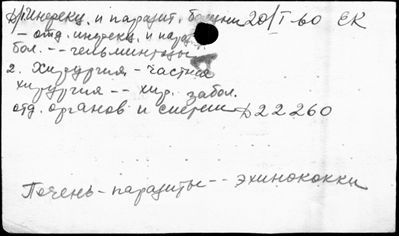 инфекц. и паразит. болезни 20/I-60 ЕК
– отд. инфекц. и пара
бол. -- гельминтозы
2. Хирургия – частная
хирургия -- хир. забол.
отд. органов и систем Д22260
Печень – паразиты -- эхинококки